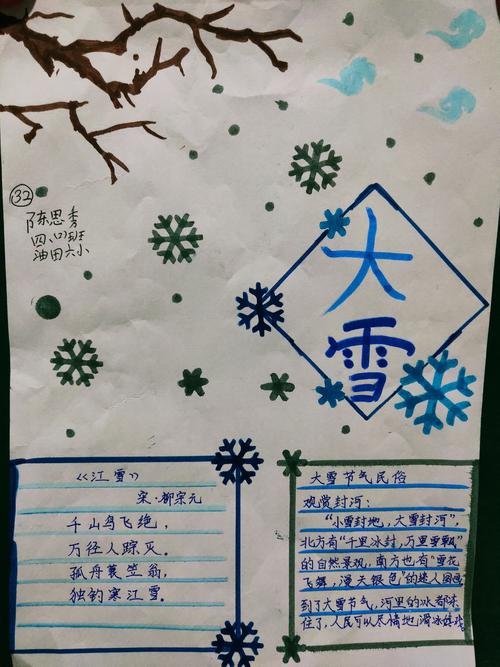 32
陈思秀
四、(1)班
油田六小
大雪
《江雪》
宋·柳宗元
千山鸟飞绝，
万径人踪灭。
孤舟蓑笠翁，
独钓寒江雪。
大雪节气民俗
观赏封河：
"小雪封地，大雪封河"，
北方有"千里冰封，万里雪飘"
的自然景观，南方也有"雪花
飞舞，漫天银色"的迷人图画
到了大雪节气，河里的冰都冻
住了，人民可以尽情地滑冰嬉戏